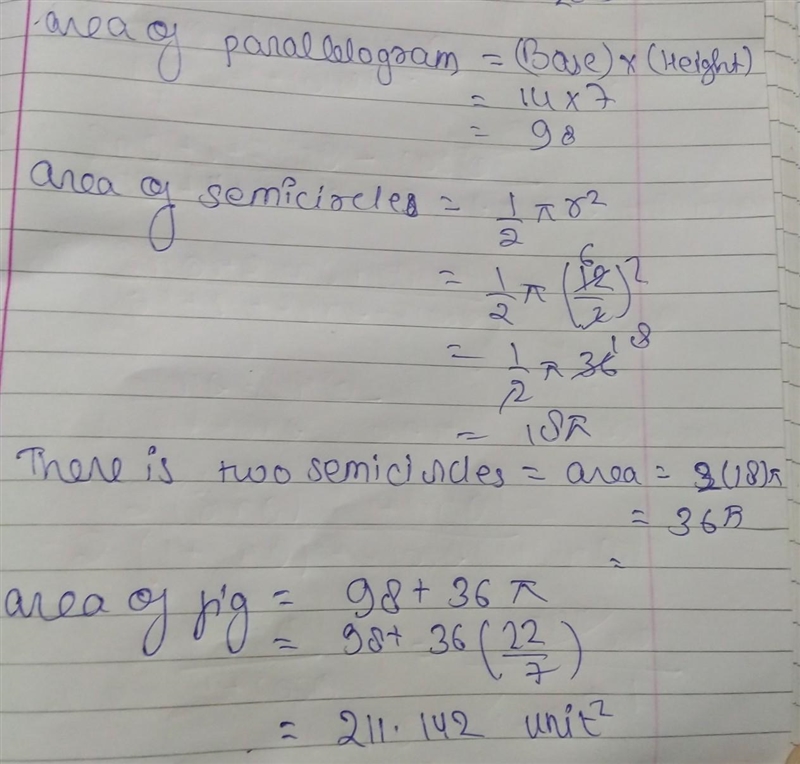 area of parallelogram = (Base) x (Height)
= 14 x 7
= 98
area of semicircles = 1/2 π r²
= 1/2 π (12/2)² 6
= 1/2 π 36 18
= 18π
There is two semicircles = area = 2(18)π
= 36π
=
area of fig = 98 + 36 π
= 98 + 36 (22/7)
= 211.142 unit²